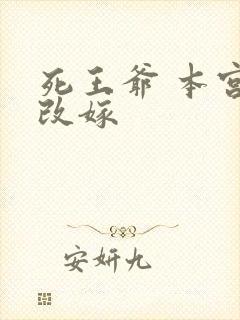 死王爷 本宫
改嫁
安妍九